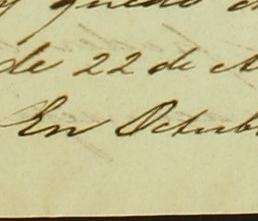 y quedo en
de 22 de A
En Octub